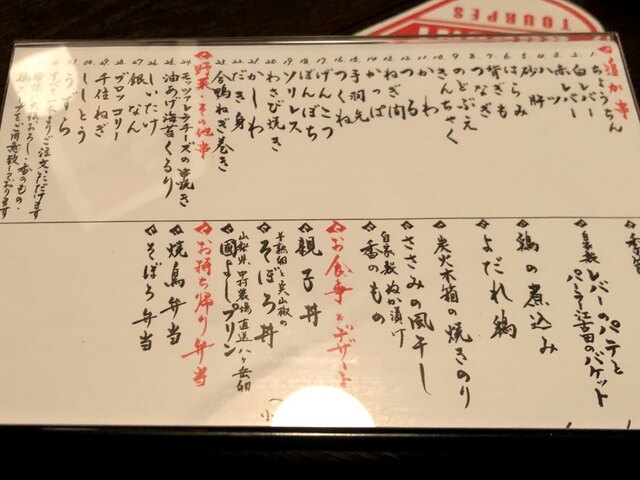 TOURPES
追加串
1. ちょうちん
2. 白レバー
3. 赤レバー
4. ハツ
5. 砂肝
6. はらみ
7. 背ぎも
8. つなぎも
9. のどぶえ
10. きんちゃく
11. かわ
12. ねぎ間
かっぱ
手羽先
つくね
げんこつ
ぼんぼち
ソリレス
20. わさび焼き
21. かしわ
22. だき身
23. 合鴨ねぎ巻き
野菜・その他串
24. モッツァレラチーズの串焼き
25. 油あげ海苔くるり
26. しいたけ
27. 銀なん
28. ブロッコリー
29. 千住ねぎ
30. ししとう
31. うずら
自家製レバーのパテと
パーラー江古田のバケット
鶏の煮込み
よだれ鶏
炭火木箱の焼きのり
ささみの風干し
自家製ぬか漬け
香のもの
お食事とデザート
親子丼
半熟卵と実山椒の
そぼろ丼
山梨県中村農場直送八ヶ岳卵
國よしプリン
お持ち帰り弁当
焼鳥弁当
そぼろ弁当